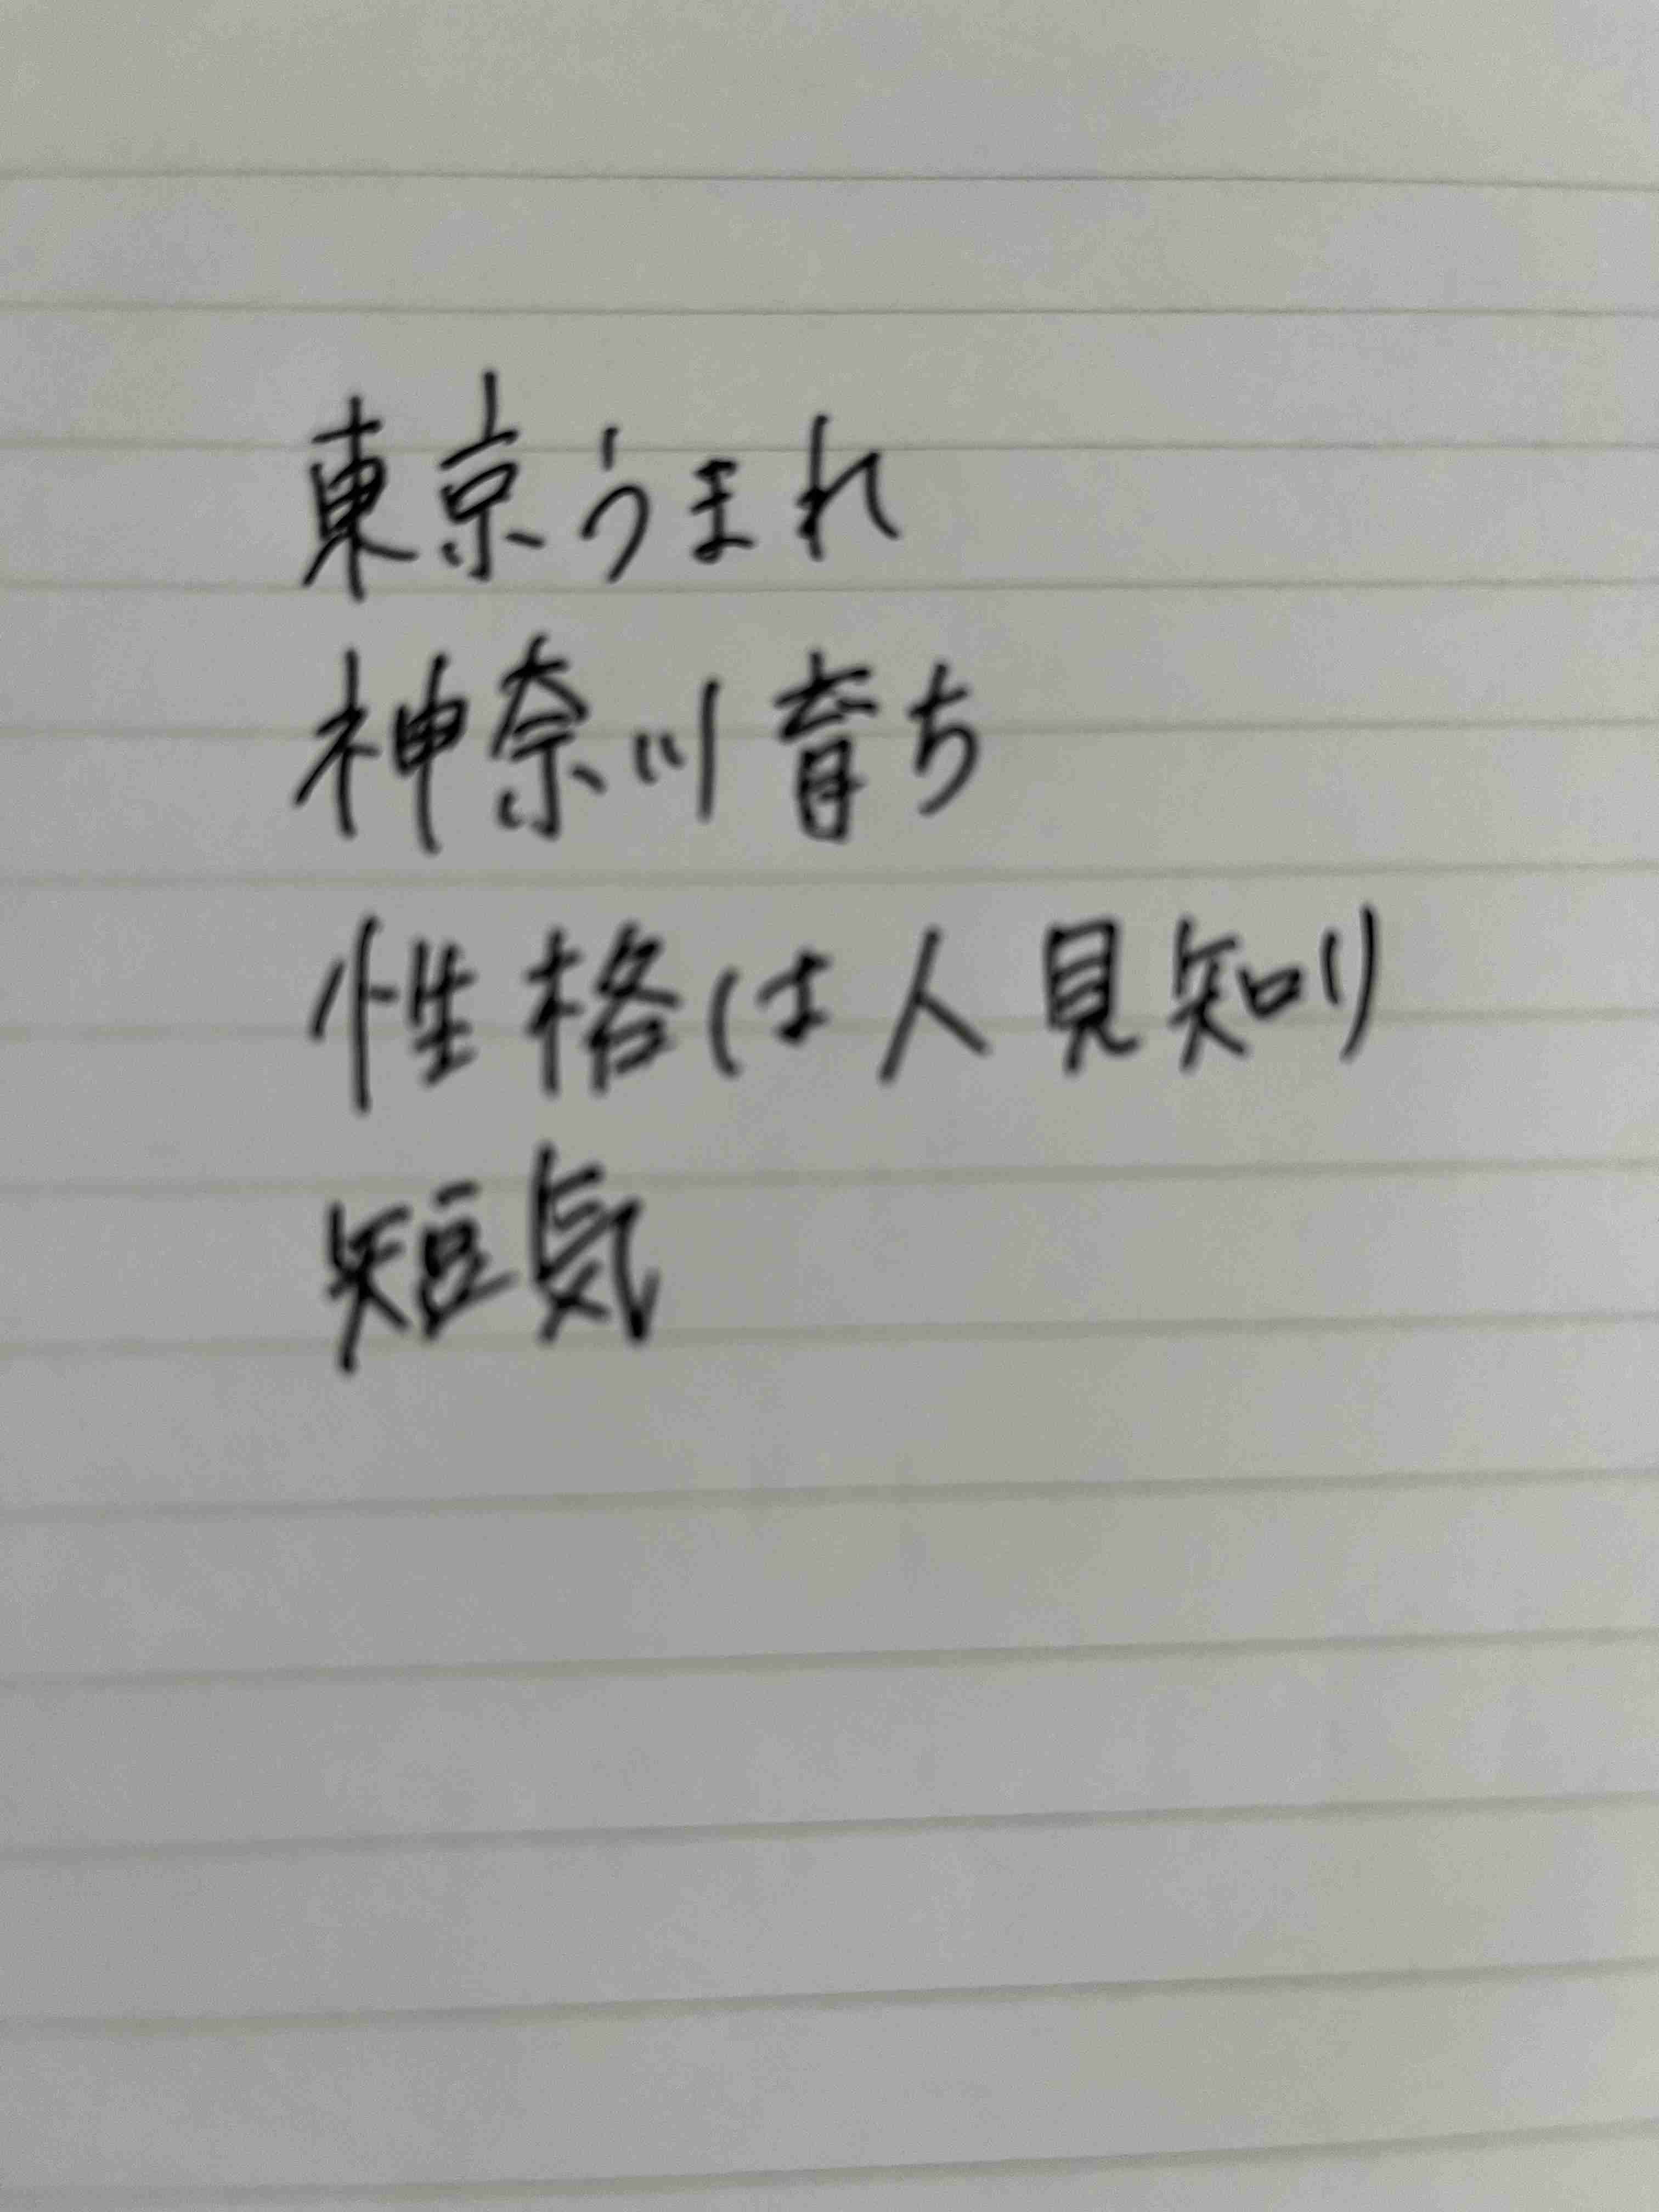 東京うまれ
神奈川育ち
性格は人見知り
短気